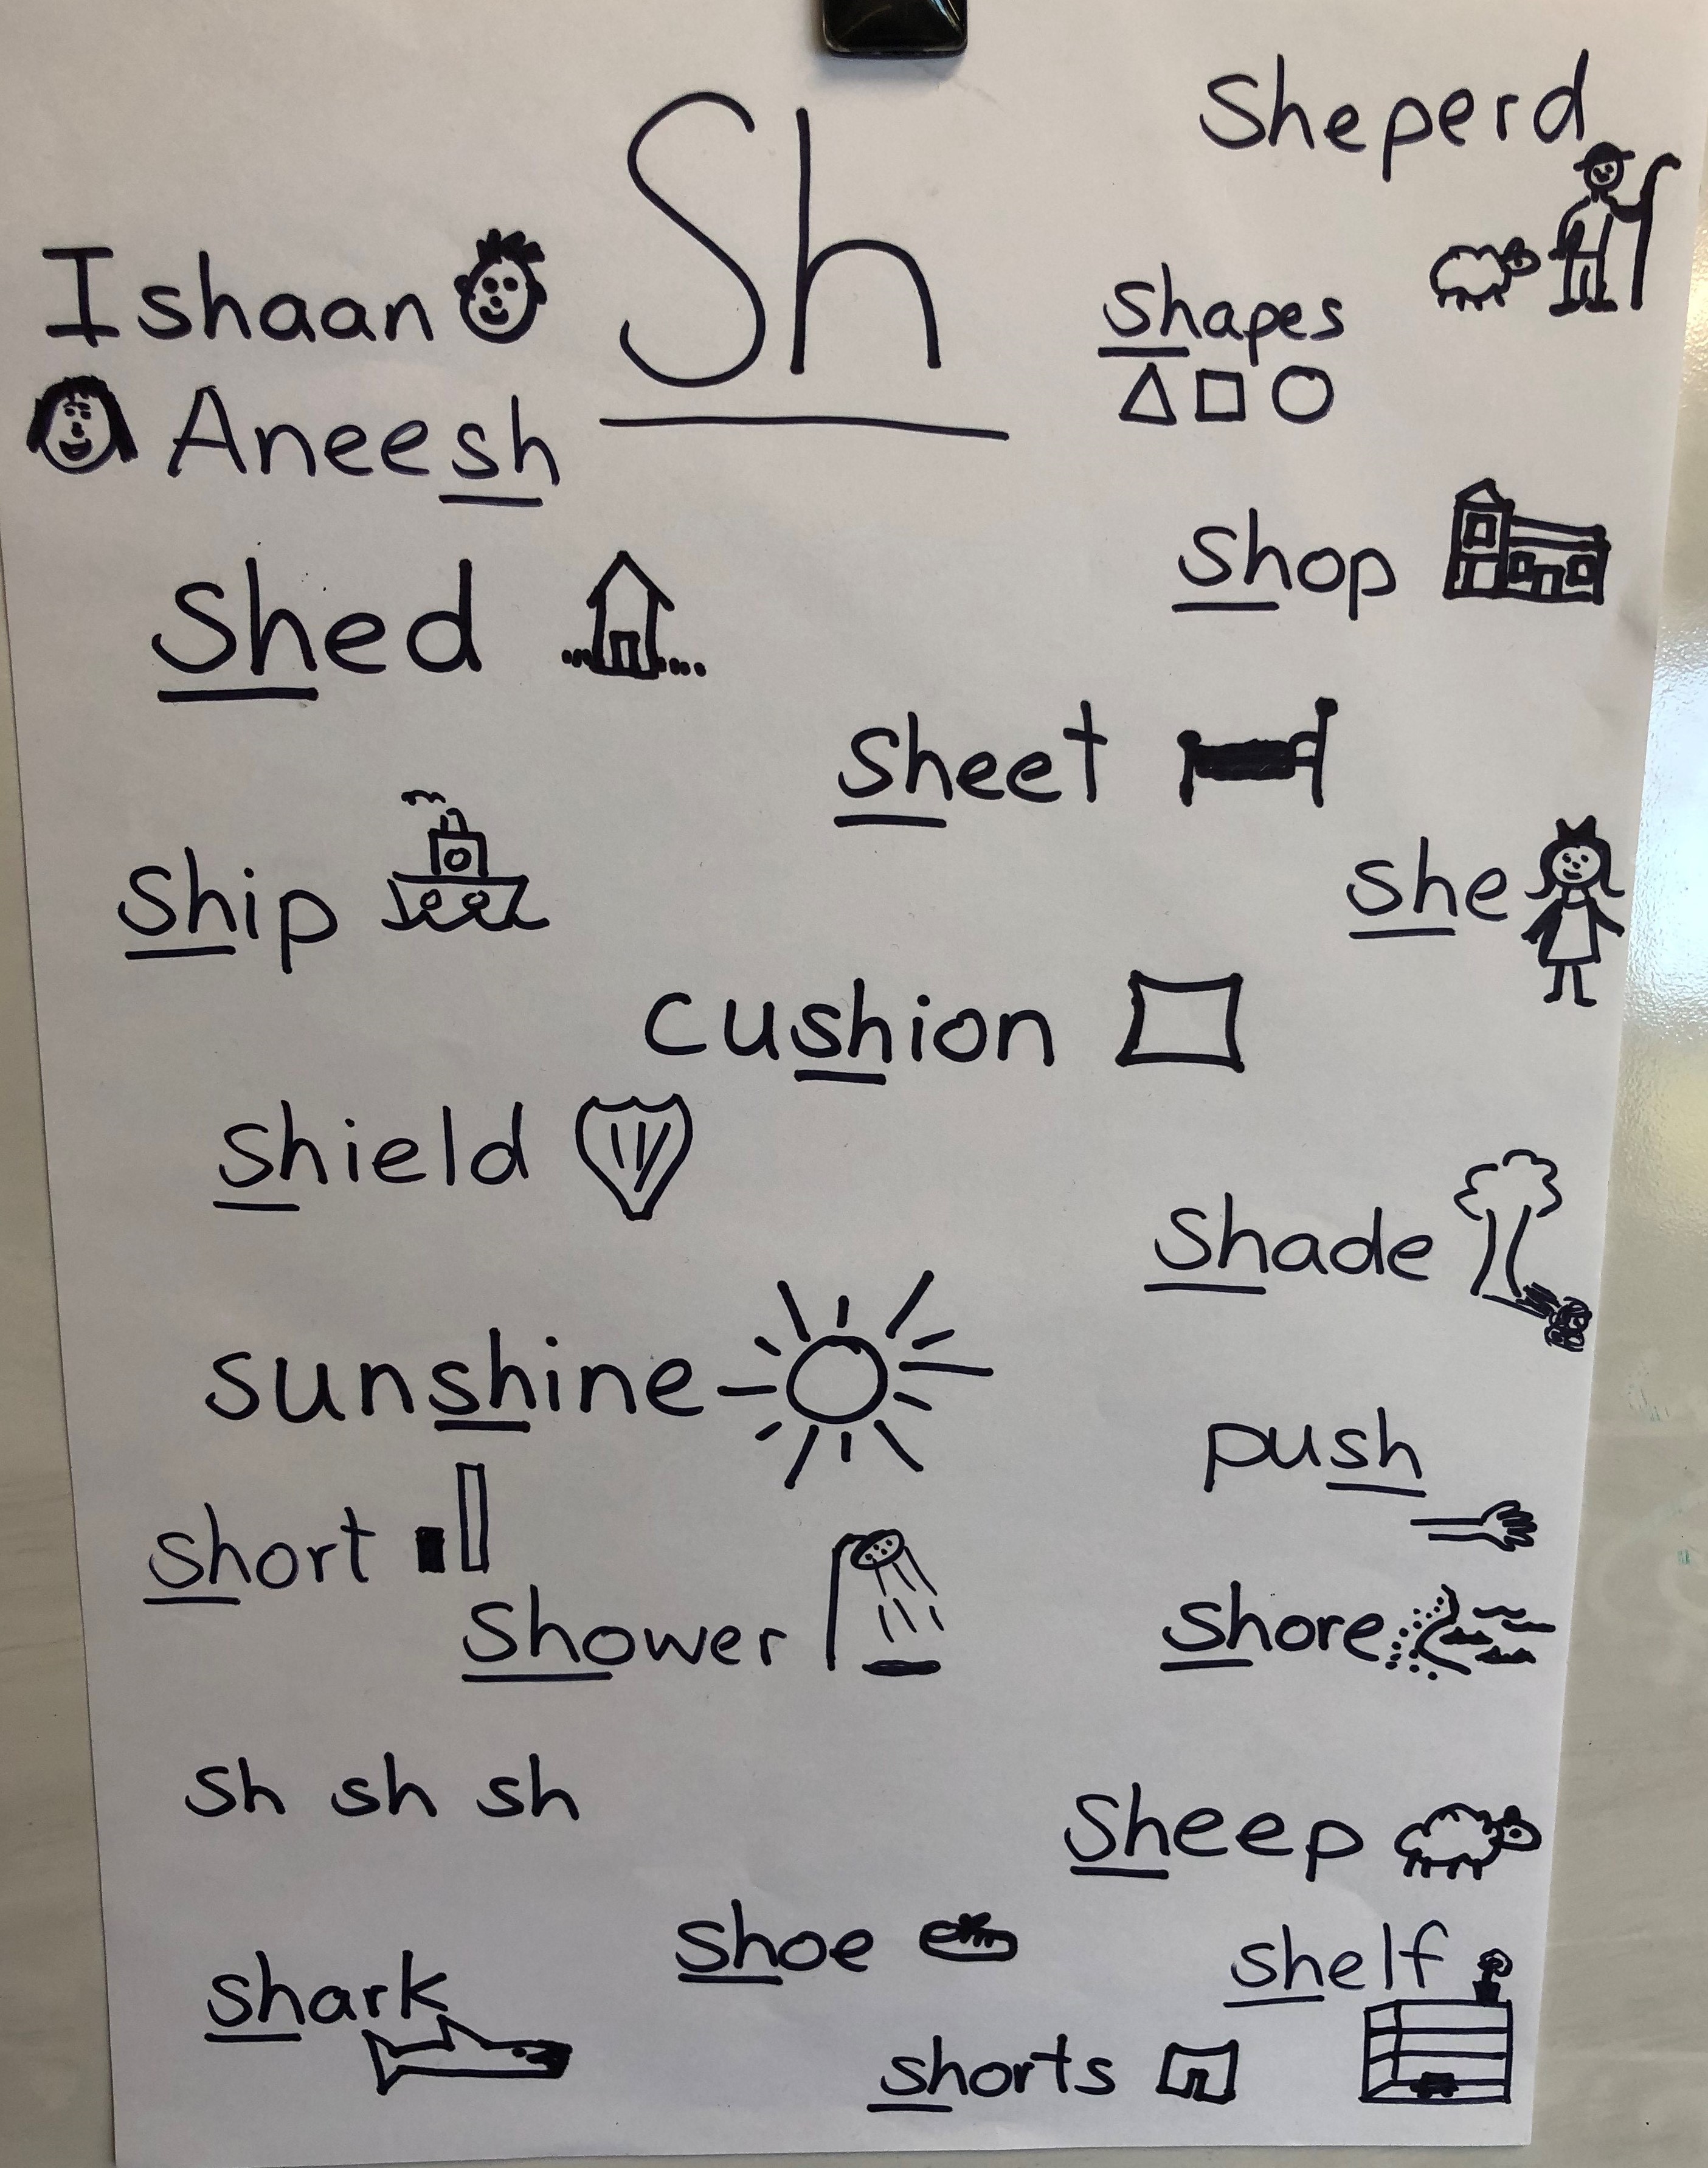 Sh
Sheperd
Ishaan
shapes
Aneesh
shop
shed
sheet
ship
she
cushion
shield
shade
sunshine
push
short
shower
shore
sh sh sh
sheep
shoe
shelf
shark
shorts